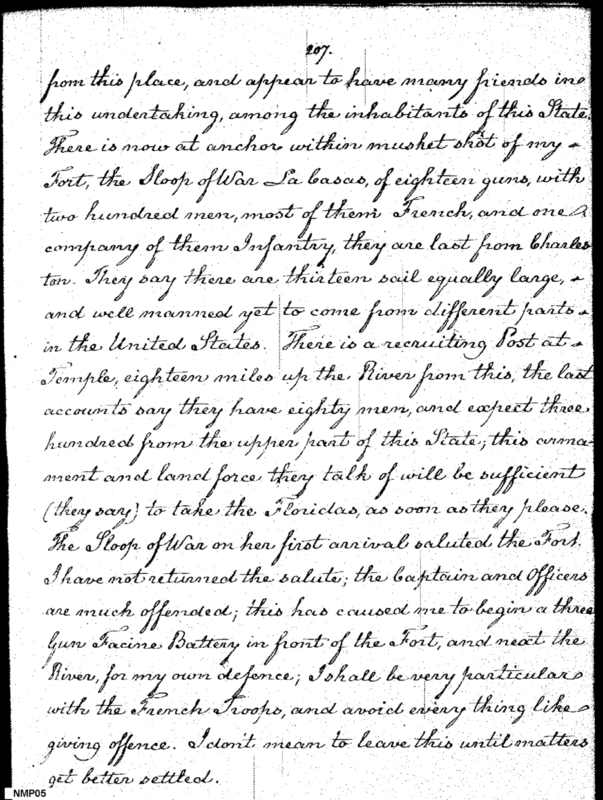 207.
from this place, and appear to have many friends in
this undertaking, among the inhabitants of this State.
There is now at anchor within musket shot of my
Fort, the Sloop of War La Casas, of eighteen guns, with
two hundred men, most of them French, and one
company of them Infantry, they are last from Charles
ton. They say there are thirteen sail equally large,
and well manned yet to come from different parts
in the United States. There is a recruiting Post at
Temple, eighteen miles up the River from this, the last
accounts say they have eighty men, and expect three
hundred from the upper part of this State; this arma-
ment and land force they talk of will be sufficient
(they say) to take the Floridas, as soon as they please.
The Sloop of War on her first arrival saluted the Fort.
I have not returned the salute; the Captain and Officers
are much offended; this has caused me to begin a three
Gun Facine Battery in front of the Fort, and next the
River, for my own defence; I shall be very particular
with the French Troops, and avoid every thing like
giving offence. I don't mean to leave this until matters
get better settled.
NMP05